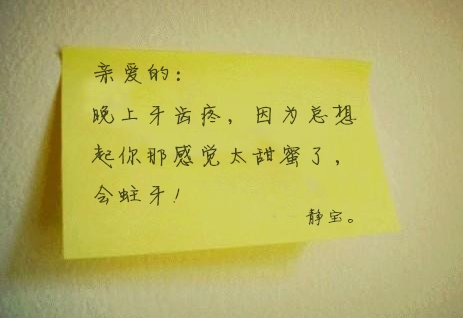 亲爱的：
晚上牙齿疼，因为总想
起你那感觉太甜蜜了，
会蛀牙！
静宝。